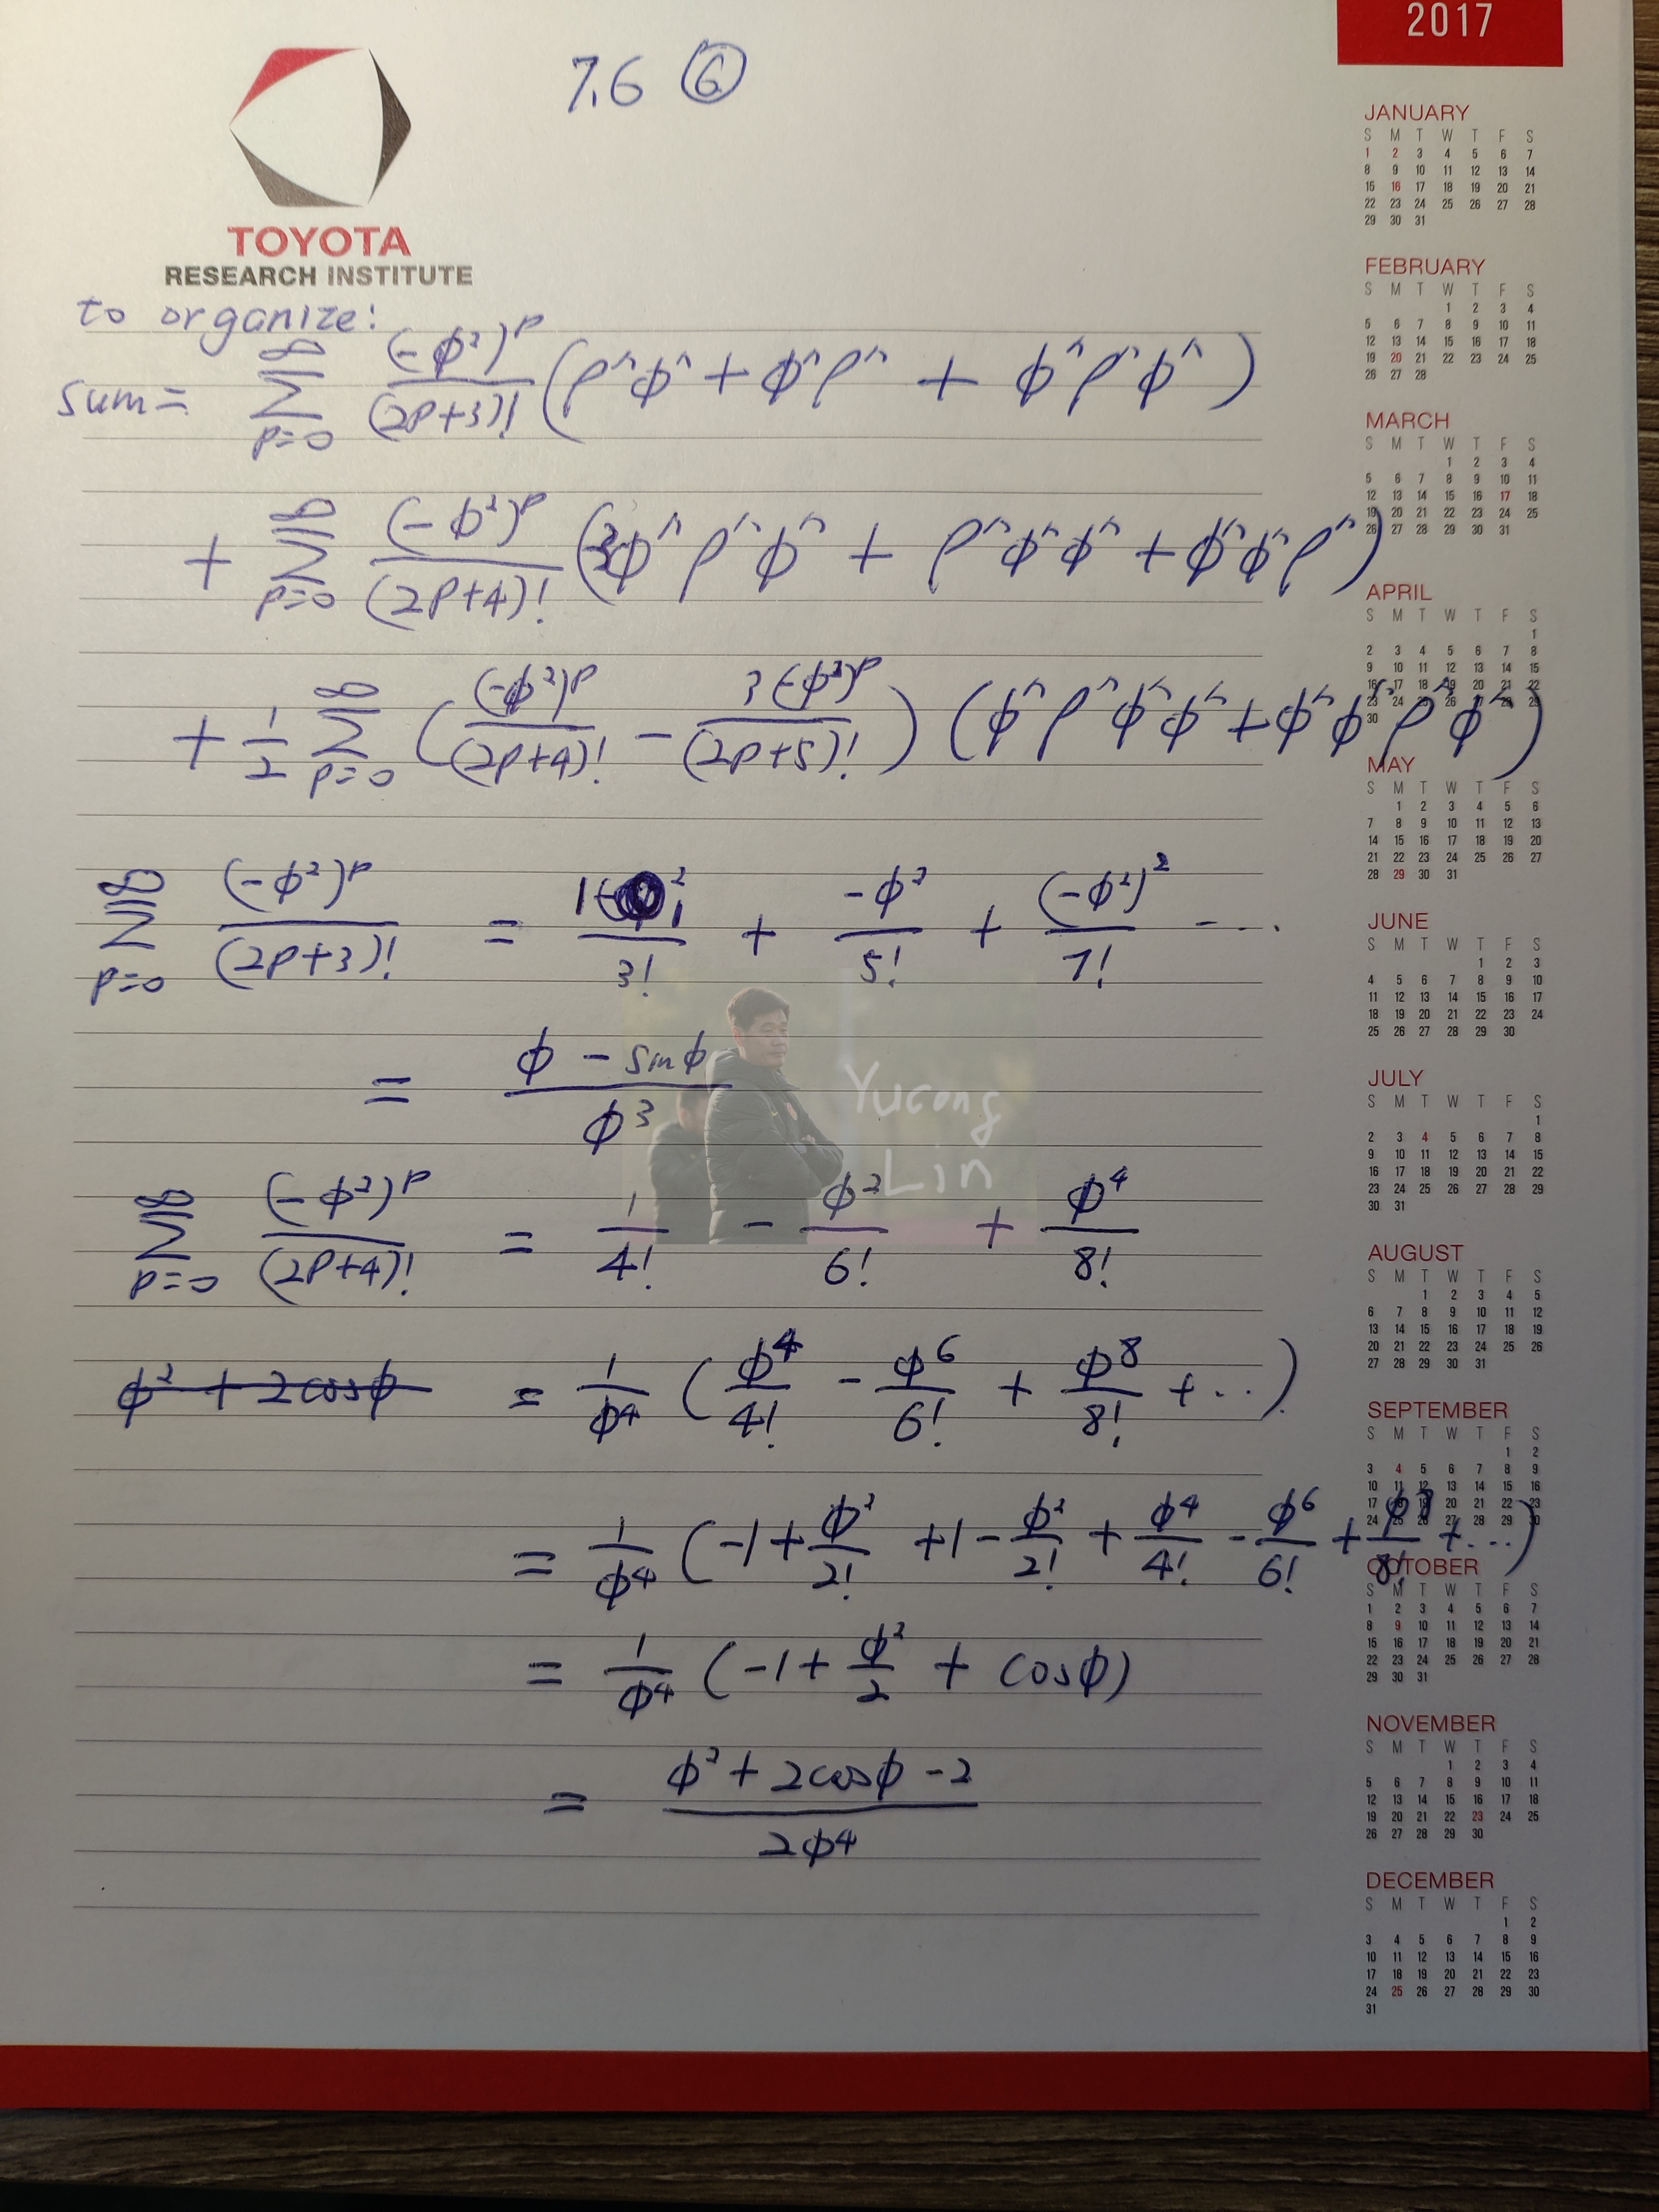 2017
7.6 ⑥
TOYOTA
RESEARCH INSTITUTE
to organize:
sum = ∑_{p=0}^{∞} (-φ²)^p / (2p+3)! (ρ^φ^ + φ^ρ^ + φ^ρ^φ^)
+ ∑_{p=0}^{∞} (-φ²)^p / (2p+4)! (φ^ρ^φ^ + ρ^φ^φ^ + φ^φ^ρ^)
+ 1/2 ∑_{p=0}^{∞} ( (-φ²)^p / (2p+4)! - 3(-φ²)^p / (2p+5)! ) (φ^ρ^φ^φ^ + φ^φ^ρ^φ^)
∑_{p=0}^{∞} (-φ²)^p / (2p+3)! = 1 / 3! + -φ² / 5! + (-φ²)² / 7! ...
= φ - sinφ / φ³
Yucong
Lin
∑_{p=0}^{∞} (-φ²)^p / (2p+4)! = 1 / 4! - φ² / 6! + φ⁴ / 8!
φ² + 2cosφ = 1/φ⁴ ( φ⁴/4! - φ⁶/6! + φ⁸/8! + ... )
= 1/φ⁴ ( -1 + φ²/2! + 1 - φ²/2! + φ⁴/4! - φ⁶/6! + φ⁸/8! + ... )
= 1/φ⁴ ( -1 + φ²/2 + cosφ )
= φ² + 2cosφ - 2 / 2φ⁴
JANUARY
S M T W T F S
1 2 3 4 5 6 7
8 9 10 11 12 13 14
15 16 17 18 19 20 21
22 23 24 25 26 27 28
29 30 31
FEBRUARY
S M T W T F S
1 2 3 4
5 6 7 8 9 10 11
12 13 14 15 16 17 18
19 20 21 22 23 24 25
26 27 28
MARCH
S M T W T F S
1 2 3 4
5 6 7 8 9 10 11
12 13 14 15 16 17 18
19 20 21 22 23 24 25
26 27 28 29 30 31
APRIL
S M T W T F S
1
2 3 4 5 6 7 8
9 10 11 12 13 14 15
16 17 18 19 20 21 22
23 24 25 26 27 28 29
30
MAY
S M T W T F S
1 2 3 4 5 6
7 8 9 10 11 12 13
14 15 16 17 18 19 20
21 22 23 24 25 26 27
28 29 30 31
JUNE
S M T W T F S
1 2 3
4 5 6 7 8 9 10
11 12 13 14 15 16 17
18 19 20 21 22 23 24
25 26 27 28 29 30
JULY
S M T W T F S
1
2 3 4 5 6 7 8
9 10 11 12 13 14 15
16 17 18 19 20 21 22
23 24 25 26 27 28 29
30 31
AUGUST
S M T W T F S
1 2 3 4 5
6 7 8 9 10 11 12
13 14 15 16 17 18 19
20 21 22 23 24 25 26
27 28 29 30 31
SEPTEMBER
S M T W T F S
1 2
3 4 5 6 7 8 9
10 11 12 13 14 15 16
17 18 19 20 21 22 23
24 25 26 27 28 29 30
OCTOBER
S M T W T F S
1 2 3 4 5 6 7
8 9 10 11 12 13 14
15 16 17 18 19 20 21
22 23 24 25 26 27 28
29 30 31
NOVEMBER
S M T W T F S
1 2 3 4
5 6 7 8 9 10 11
12 13 14 15 16 17 18
19 20 21 22 23 24 25
26 27 28 29 30
DECEMBER
S M T W T F S
1 2
3 4 5 6 7 8 9
10 11 12 13 14 15 16
17 18 19 20 21 22 23
24 25 26 27 28 29 30
31